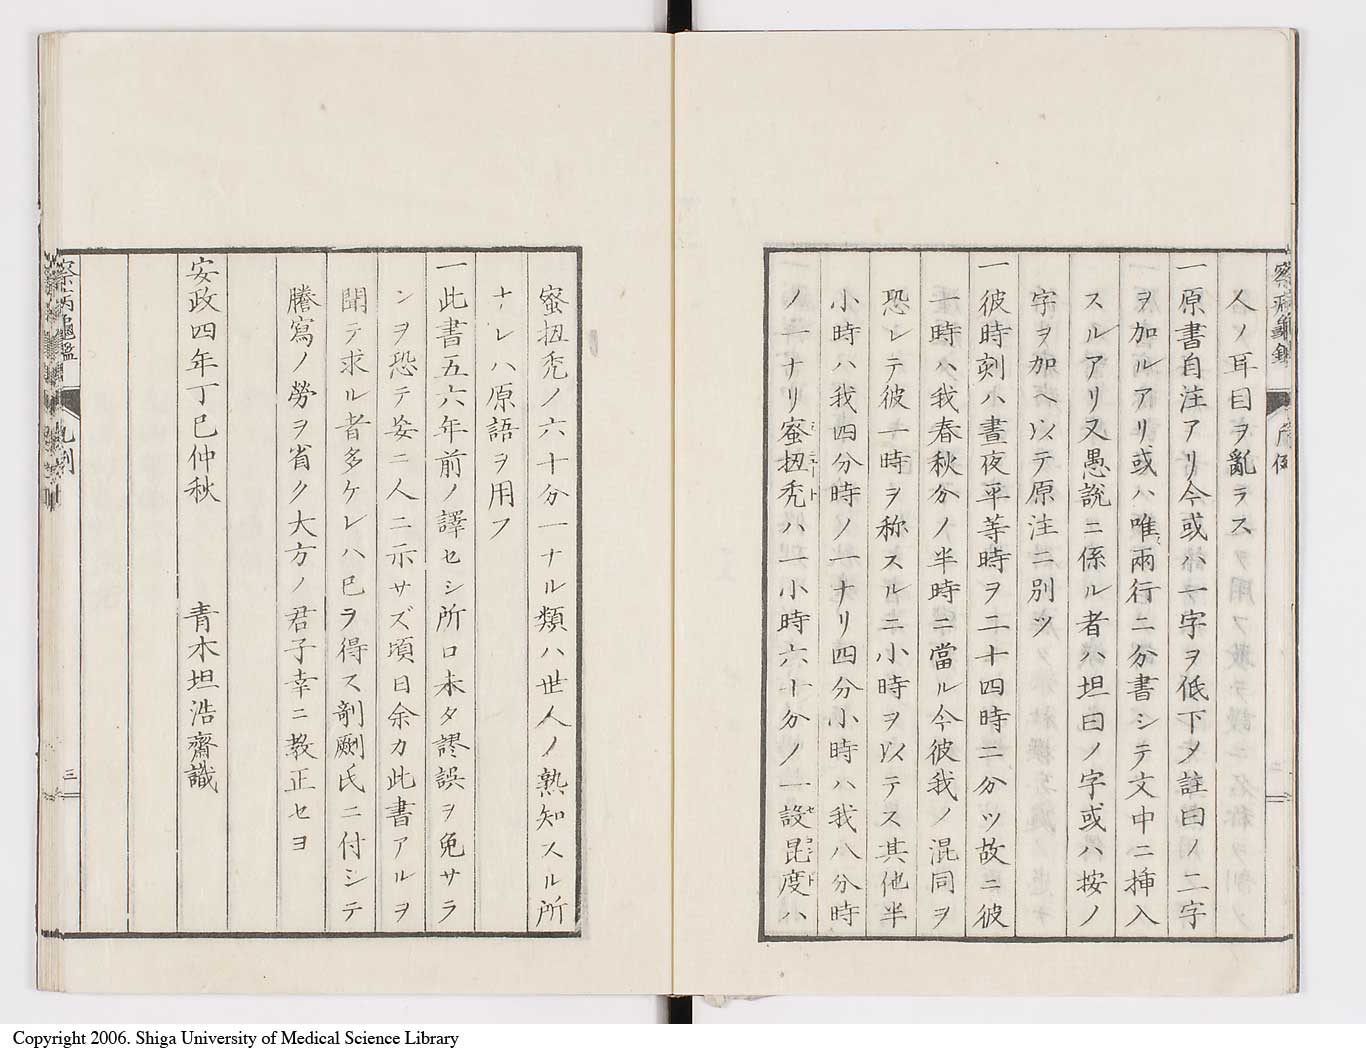 人ノ耳目ヲ亂ラス
一原書自注アリ今或ハ一字ヲ低下タ註曰ノ二字
ヲ加ルアリ或ハ唯兩行ニ分書シテ文中ニ挿入
スルアリ又愚説ニ係ル者ハ坦曰ノ字或ハ按ノ
字ヲ加ヘ以テ原注ニ別ツ
一彼時刻ハ晝夜平等時ヲ二十四時ニ分ツ故ニ彼
一時ハ我春秋分ノ半時ニ當ル今彼我ノ混同ヲ
恐レテ彼一時ヲ称スルニ小時ヲ以テス其他半
小時ハ我四分時ノ一ナリ四分小時ハ我八分時
ノ一ナリ蜜扭禿ハ一小時六十分ノ一設昆度ハ
蜜扭禿ノ六十分一ナル類ハ世人ノ熟知スル所
ナレハ原語ヲ用フ
一此書五六年前ノ譯セシ所ロ未タ謬誤ヲ免サラ
ンヲ恐テ妄ニ人ニ示サズ頃日余カ此書アルヲ
聞テ求ル者多ケレハ已ヲ得ス剞劂氏ニ付シテ
謄寫ノ勞ヲ省ク大方ノ君子幸ニ教正セヨ
安政四年丁巳仲秋
青木坦浩齋識
察病龜鑑 凡例 三
Copyright 2006. Shiga University of Medical Science Library